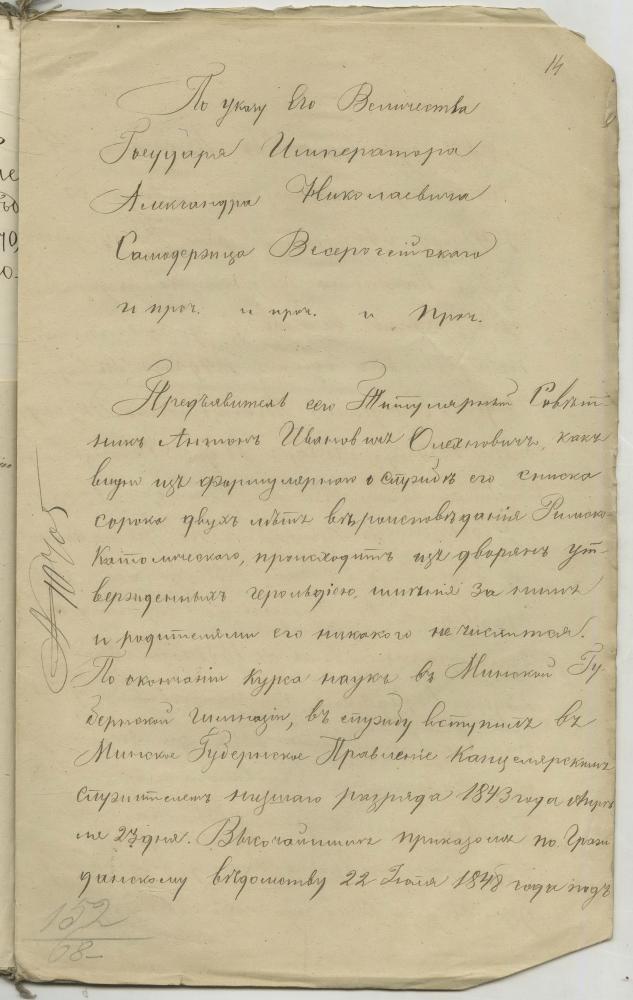 14
По указу Его Величества
Государя Императора
Александра Николаевича
Самодержца Всероссійскаго
и проч. и проч. и проч.
Предъявитель сего Титулярный Совѣт-
никъ Антонъ Ивановичъ Олехновичъ, какъ
видно изъ формулярнаго о службѣ его списка
сорока двухъ лѣтъ вѣроисповѣданія Римско-
Католическаго, происходитъ изъ дворянъ ут-
вержденныхъ герольдіею, имѣнія за нимъ
и родителями его никакого не числится.
По окончаніи курса наукъ въ Минской Гу-
бернской гимназіи, въ службу вступилъ въ
Минское Губернское Правленіе Канцелярскимъ
служителемъ низшаго разряда 1843 года Апрѣ
ля 23 дня. Высочайшимъ приказомъ по Граж
данскому вѣдомству 22 Іюля 1848 года подъ
152
68-